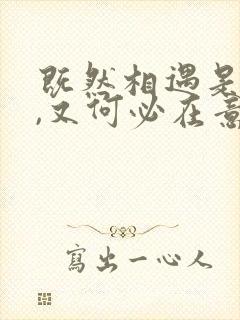 既然相遇是
,又何必在意
寫出一心人